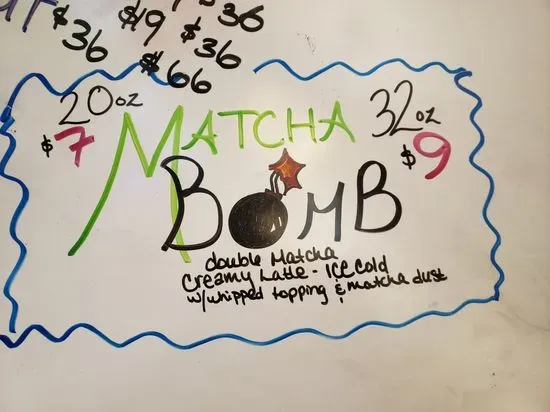 $36
$19
$36
$36
$66
20oz
$7
MATCHA
32oz
$9
BOMB
double Matcha
Creamy Latte - Ice Cold
w/whipped topping & matcha dust